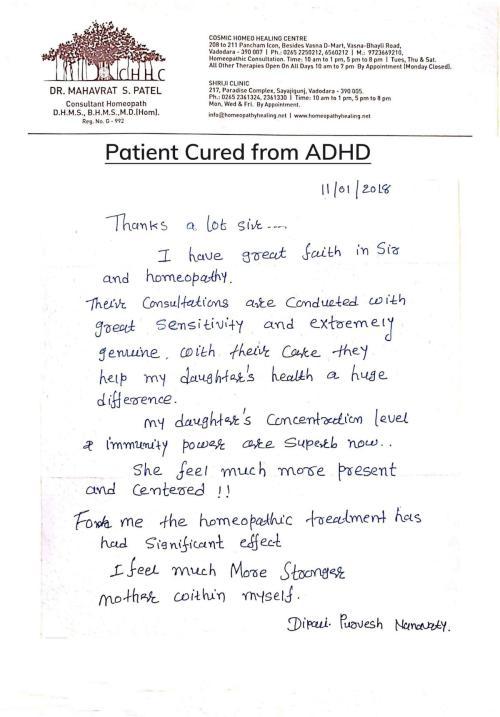 CHHC
DR. MAHAVRAT S. PATEL
Consultant Homeopath
D.H.M.S., B.H.M.S.,M.D.(Hom).
Reg. No. G - 992
COSMIC HOMEO HEALING CENTRE
208 to 211 Pancham Icon, Besides Vasna D-Mart, Vasna-Bhayli Road,
Vadodara - 390 007 | Ph.: 0265 2250212, 6560212 | M.: 9723669210,
Homeopathic Consultation. Time: 10 am to 1 pm, 5 pm to 8 pm | Tues, Thu & Sat.
All Other Therapies Open On All Days 10 am to 7 pm By Appointment (Monday Closed).
SHRIJI CLINIC
217, Paradise Complex, Sayajigunj, Vadodara - 390 005.
Ph.: 0265 2361324, 2361330 | Time: 10 am to 1 pm, 5 pm to 8 pm
Mon, Wed & Fri. By Appointment.
info@homeopathyhealing.net | www.homeopathyhealing.net
Patient Cured from ADHD
11/01/2018
Thanks a lot sir....
I have great faith in Sir
and homeopathy.
Their Consultations are Conducted with
great sensitivity and extremely
genuine. with their Care they
help my daughter's health a huge
difference.
my daughter's Concentration level
& immunity power are Superb now..
She feel much more present
and Centered !!
For me the homeopathic treatment has
had Significant effect
I feel much More Stronger
mother within myself.
Purvesh